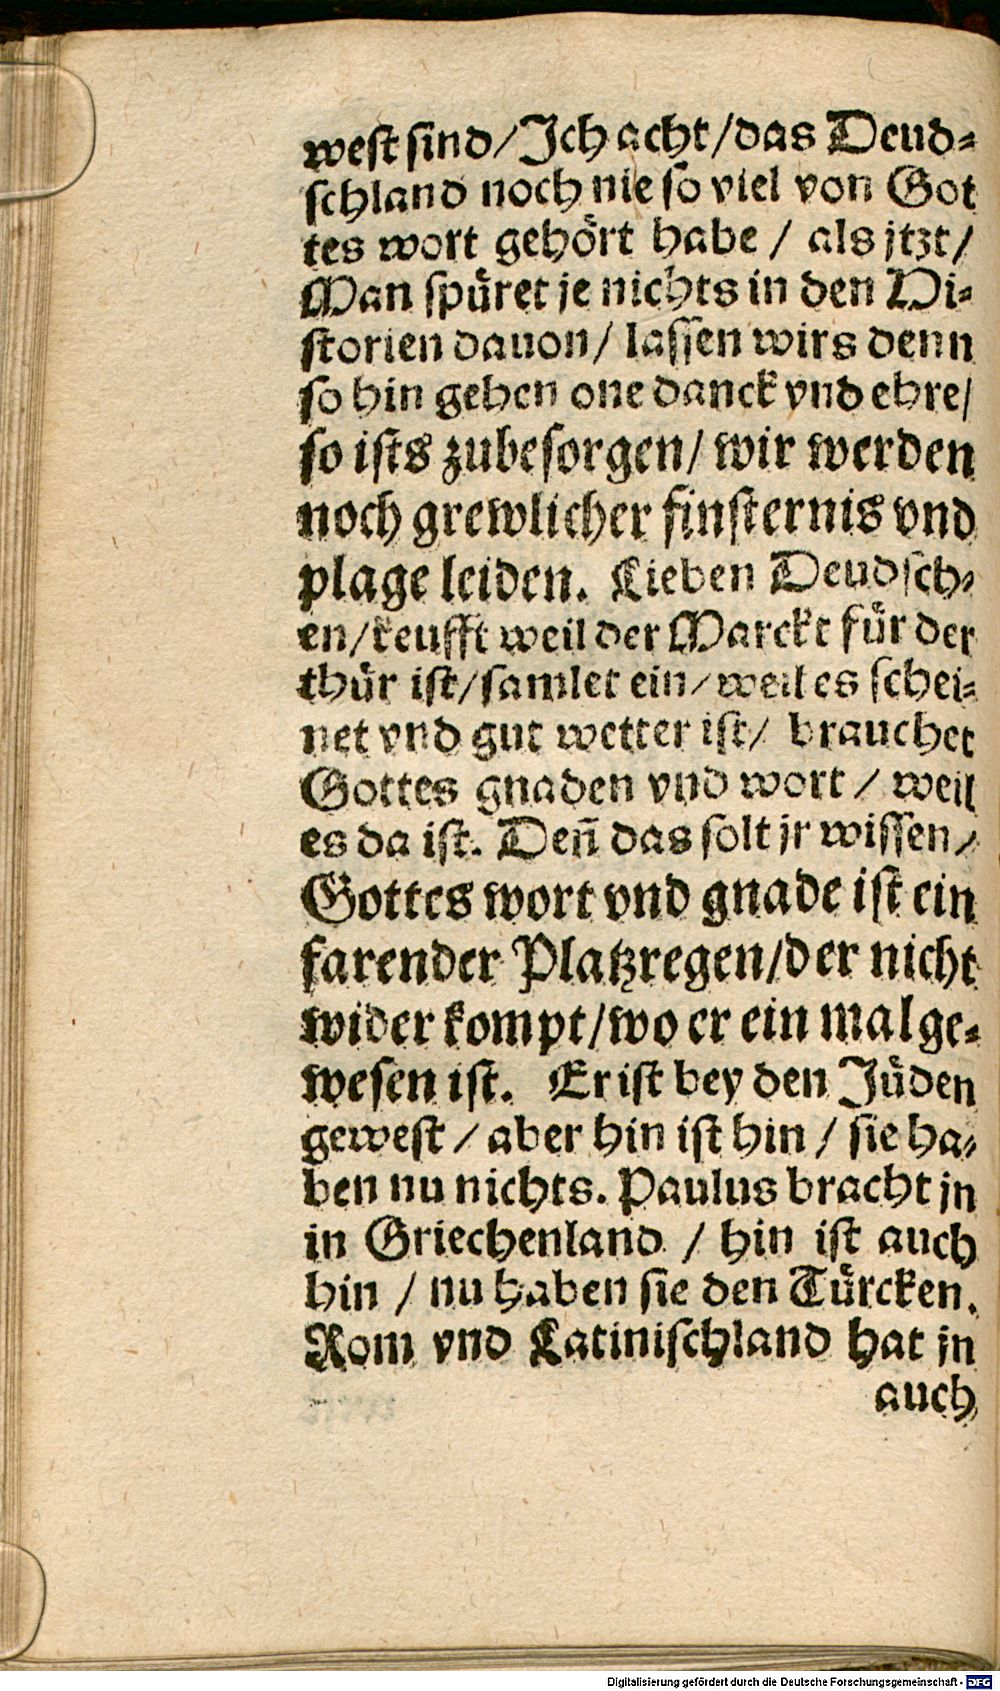 west sind/Ich acht/das Deud-
schland noch nie so viel von Got
tes wort gehört habe / als jtzt/
Man spüret je nichts in den Hi-
storien dauon/ lassen wirs denn
so hin gehen one danck vnd ehre/
so ists zubesorgen/ wir werden
noch grewlicher finsternis vnd
plage leiden. Lieben Deudsch-
en/keufft weil der Marckt für der
thür ist/samlet ein/weil es schei-
net vnd gut wetter ist/ brauchet
Gottes gnaden vnd wort / weil
es da ist. Deñ das solt jr wissen/
Gottes wort vnd gnade ist ein
farender Platzregen/der nicht
wider kompt/wo er ein mal ge-
wesen ist. Er ist bey den Jüden
gewest / aber hin ist hin / sie ha-
ben nu nichts. Paulus bracht jn
in Griechenland / hin ist auch
hin / nu haben sie den Türcken.
Rom vnd Latinischland hat jn
auch
Digitalisierung gefördert durch die Deutsche Forschungsgemeinschaft - DFG